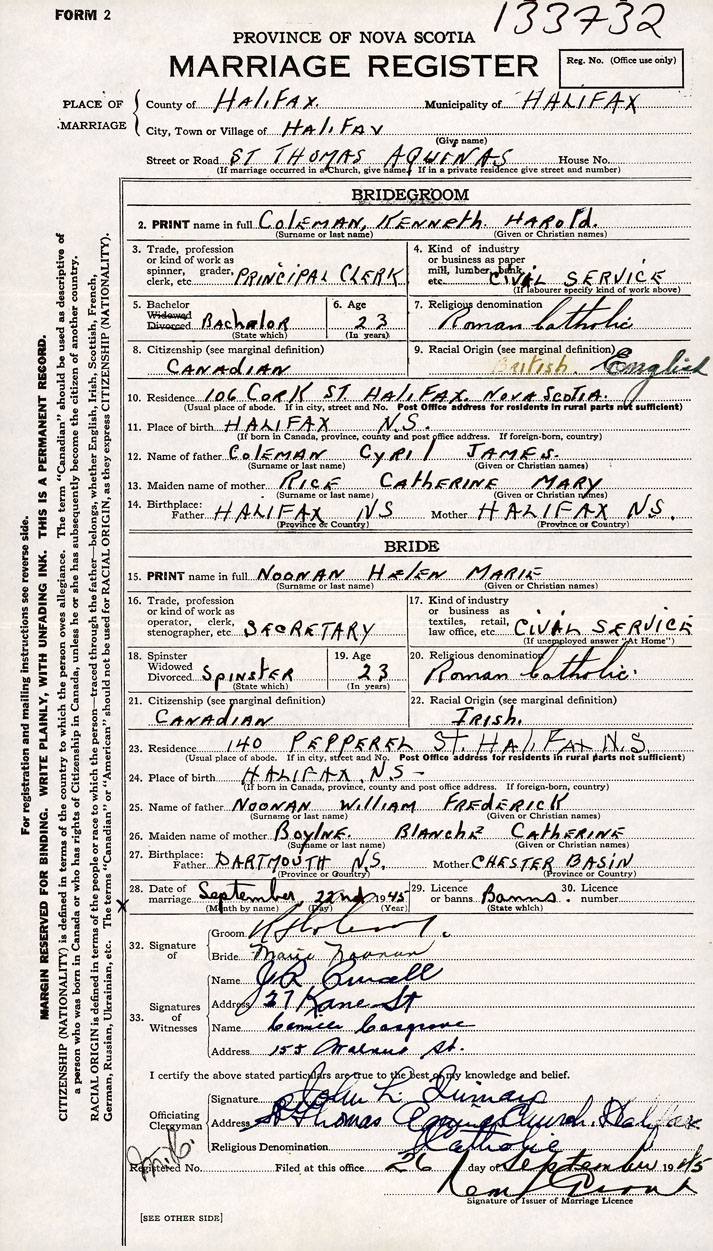 FORM 2
133732
PROVINCE OF NOVA SCOTIA
MARRIAGE REGISTER
Reg. No. (Office use only)
PLACE OF MARRIAGE
County of HALIFAX. Municipality of HALIFAX
City, Town or Village of HALIFAX
(Give name)
Street or Road ST THOMAS AQUENAS House No.
(If marriage occurred in a Church, give name. If in a private residence give street and number)
BRIDEGROOM
2. PRINT name in full COLEMAN, KENNETH HAROLD.
(Surname or last name) (Given or Christian names)
3. Trade, profession or kind of work as spinner, grader, clerk, etc. PRINCIPAL CLERK
4. Kind of industry or business as paper mill, lumber, bank, etc. CIVAL SERVICE
(If labourer specify kind of work above)
5. Bachelor Widowed Divorced BACHALOR
(State which)
6. Age 23
(In years)
7. Religious denomination Roman Catholic
8. Citizenship (see marginal definition) CANADIAN
9. Racial Origin (see marginal definition) British. English
10. Residence 106 CORK ST. HALIFAX. NOVA SCOTIA.
(Usual place of abode. If in city, street and No. Post Office address for residents in rural parts not sufficient)
11. Place of birth HALIFAX N.S.
(If born in Canada, province, county and post office address. If foreign-born, country)
12. Name of father COLEMAN CYRIL JAMES.
(Surname or last name) (Given or Christian names)
13. Maiden name of mother RICE CATHERINE MARY
(Surname or last name) (Given or Christian names)
14. Birthplace: Father HALIFAX NS Mother HALIFAX NS.
(Province or Country) (Province or Country)
BRIDE
15. PRINT name in full NOONAN HELEN MARIE
(Surname or last name) (Given or Christian names)
16. Trade, profession or kind of work as operator, clerk, stenographer, etc. SECRETARY
17. Kind of industry or business as textiles, retail, law office, etc. CIVAL SERVICE
(If unemployed answer "At Home")
18. Spinster Widowed Divorced SPINSTER
(State which)
19. Age 23
(In years)
20. Religious denomination Roman Catholic.
21. Citizenship (see marginal definition) CANADIAN
22. Racial Origin (see marginal definition) IRISH.
23. Residence 140 PEPPEREL ST. HALIFAX N.S.
(Usual place of abode. If in city, street and No. Post Office address for residents in rural parts not sufficient)
24. Place of birth HALIFAX N.S -
(If born in Canada, province, county and post office address. If foreign-born, country)
25. Name of father NOONAN WILLIAM FREDERICK
(Surname or last name) (Given or Christian names)
26. Maiden name of mother BOYLNE. BLANCHE CATHERINE
(Surname or last name) (Given or Christian names)
27. Birthplace: Father DARTMOUTH N.S. Mother CHESTER BASIN
(Province or Country) (Province or Country)
28. Date of marriage September 22nd 1945
(Month by name) (Day) (Year)
29. Licence or banns Banns.
(State which)
30. Licence number
X
32. Signature of
Groom
Bride Marie Noonan
33. Signatures of Witnesses
Name
Address 27 Kane St
Name Camille Cosgrove
Address 155 Walnut St.
I certify the above stated particulars are true to the best of my knowledge and belief.
Officiating Clergyman
Signature John L.
Address St Thomas Church. Halifax
Religious Denomination Catholic
Registered No. Filed at this office 26 day of September 1945
Signature of Issuer of Marriage Licence
[SEE OTHER SIDE]
For registration and mailing instructions see reverse side.
MARGIN RESERVED FOR BINDING. WRITE PLAINLY, WITH UNFADING INK. THIS IS A PERMANENT RECORD.
CITIZENSHIP (NATIONALITY) is defined in terms of the country to which the person owes allegiance. The term "Canadian" should be used as descriptive of
a person who was born in Canada or who has rights of Citizenship in Canada, unless he or she has subsequently become the citizen of another country.
RACIAL ORIGIN is defined in terms of the people or race to which the person—traced through the father—belongs, whether English, Irish, Scottish, French,
German, Russian, Ukrainian, etc. The terms "Canadian" or "American" should not be used for RACIAL ORIGIN, as they express CITIZENSHIP (NATIONALITY).